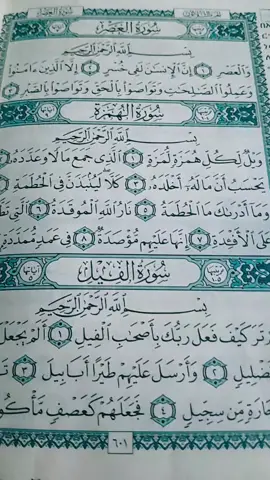 سُورَةُ العَصْرِ
بِسْمِ اللَّهِ الرَّحْمَٰنِ الرَّحِيمِ
وَالْعَصْرِ ١ إِنَّ الْإِنسَٰنَ لَفِى خُسْرٍ ٢ إِلَّا الَّذِينَ ءَامَنُوا
وَعَمِلُوا الصَّٰلِحَٰتِ وَتَوَاصَوْا بِالْحَقِّ وَتَوَاصَوْا بِالصَّبْرِ ٣
سُورَةُ الهُمَزَةِ
بِسْمِ اللَّهِ الرَّحْمَٰنِ الرَّحِيمِ
وَيْلٌ لِّكُلِّ هُمَزَةٍ لُّمَزَةٍ ١ الَّذِى جَمَعَ مَالًا وَعَدَّدَهُۥ
يَحْسَبُ أَنَّ مَالَهُۥٓ أَخْلَدَهُۥ ٣ كَلَّا لَيُنۢبَذَنَّ فِى الْحُطَمَةِ
وَمَآ أَدْرَىٰكَ مَا الْحُطَمَةُ ٥ نَارُ اللَّهِ الْمُوقَدَةُ ٦ الَّتِى
عَلَى الْأَفْـِٔدَةِ ٧ إِنَّهَا عَلَيْهِم مُّؤْصَدَةٌ ٨ فِى عَمَدٍ مُّمَدَّدَةٍ
سُورَةُ الفِيلِ
بِسْمِ اللَّهِ الرَّحْمَٰنِ الرَّحِيمِ
تَرَ كَيْفَ فَعَلَ رَبُّكَ بِأَصْحَٰبِ الْفِيلِ ١ أَلَمْ يَجْعَلْ
تَضْلِيلٍ ٢ وَأَرْسَلَ عَلَيْهِمْ طَيْرًا أَبَابِيلَ ٣
مِّن سِجِّيلٍ ٤ فَجَعَلَهُمْ كَعَصْفٍ مَّأْكُولٍ
٦٠١